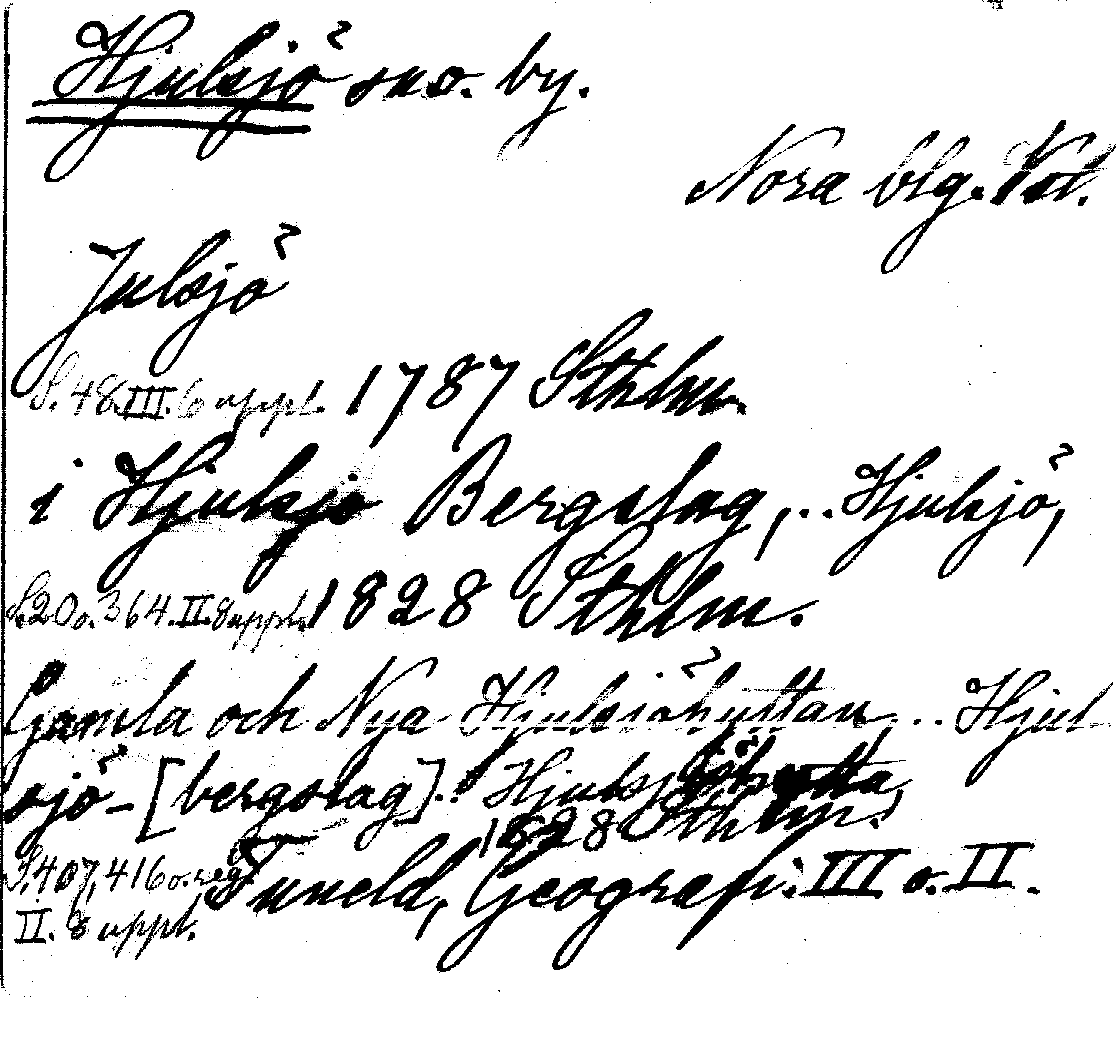 Hjulsjö sn o. by.
Nora blg. Vstl.
Julsjö
S. 48. III. 6 uppl. 1787 Sthlm.
i Hjulsjö Bergslag, .. Hjulsjö,
S. 20 o. 364. II. 8 uppl. 1828 Sthlm.
Gamla och Nya Hjulsiöhyttan, .. Hjul
sjö- [bergslag] .. Hjulsjöhytta,
1828 Sthlm.
S. 407, 416 o. reg. Tuneld, Geografi. III o. II.
II. 8 uppl.